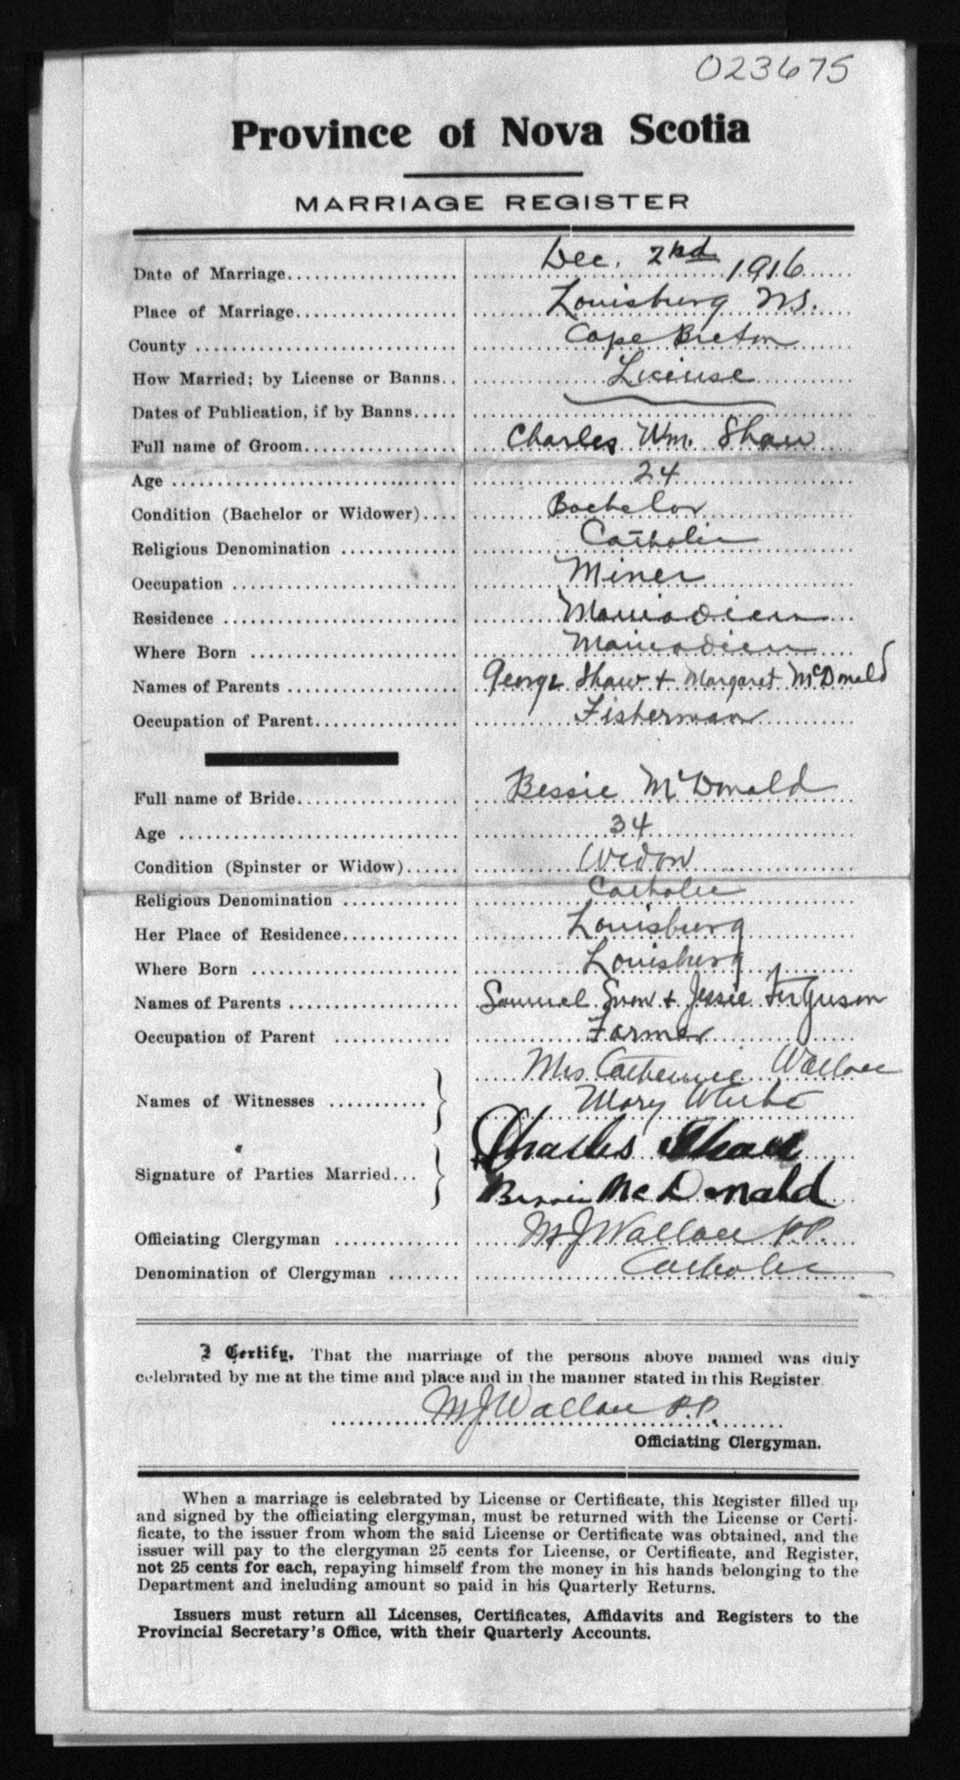 023675
Province of Nova Scotia
MARRIAGE REGISTER
Date of Marriage Dec. 2nd 1916
Place of Marriage Louisburg NS.
County Cape Breton
How Married; by License or Banns License
Dates of Publication, if by Banns
Full name of Groom Charles Wm. Shaw
Age 24
Condition (Bachelor or Widower) Bachelor
Religious Denomination Catholic
Occupation Miner
Residence Mainadieu
Where Born Mainadieu
Names of Parents George Shaw + Margaret McDonald
Occupation of Parent Fisherman
Full name of Bride Bessie McDonald
Age 34
Condition (Spinster or Widow) Widow
Religious Denomination Catholic
Her Place of Residence Louisburg
Where Born Louisburg
Names of Parents Samuel Snow + Jessie Ferguson
Occupation of Parent Farmer
Mrs. Catherine Wallace
Names of Witnesses
Mary White
Charles Shaw
Signature of Parties Married
Bessie McDonald
Officiating Clergyman MJ Wallace P.P.
Denomination of Clergyman Catholic
I Certify, That the marriage of the persons above named was duly
celebrated by me at the time and place and in the manner stated in this Register.
MJ Wallace P.P.
Officiating Clergyman.
When a marriage is celebrated by License or Certificate, this Register filled up
and signed by the officiating clergyman, must be returned with the License or Certi-
ficate, to the issuer from whom the said License or Certificate was obtained, and the
issuer will pay to the clergyman 25 cents for License, or Certificate, and Register,
not 25 cents for each, repaying himself from the money in his hands belonging to the
Department and including amount so paid in his Quarterly Returns.
Issuers must return all Licenses, Certificates, Affidavits and Registers to the
Provincial Secretary's Office, with their Quarterly Accounts.